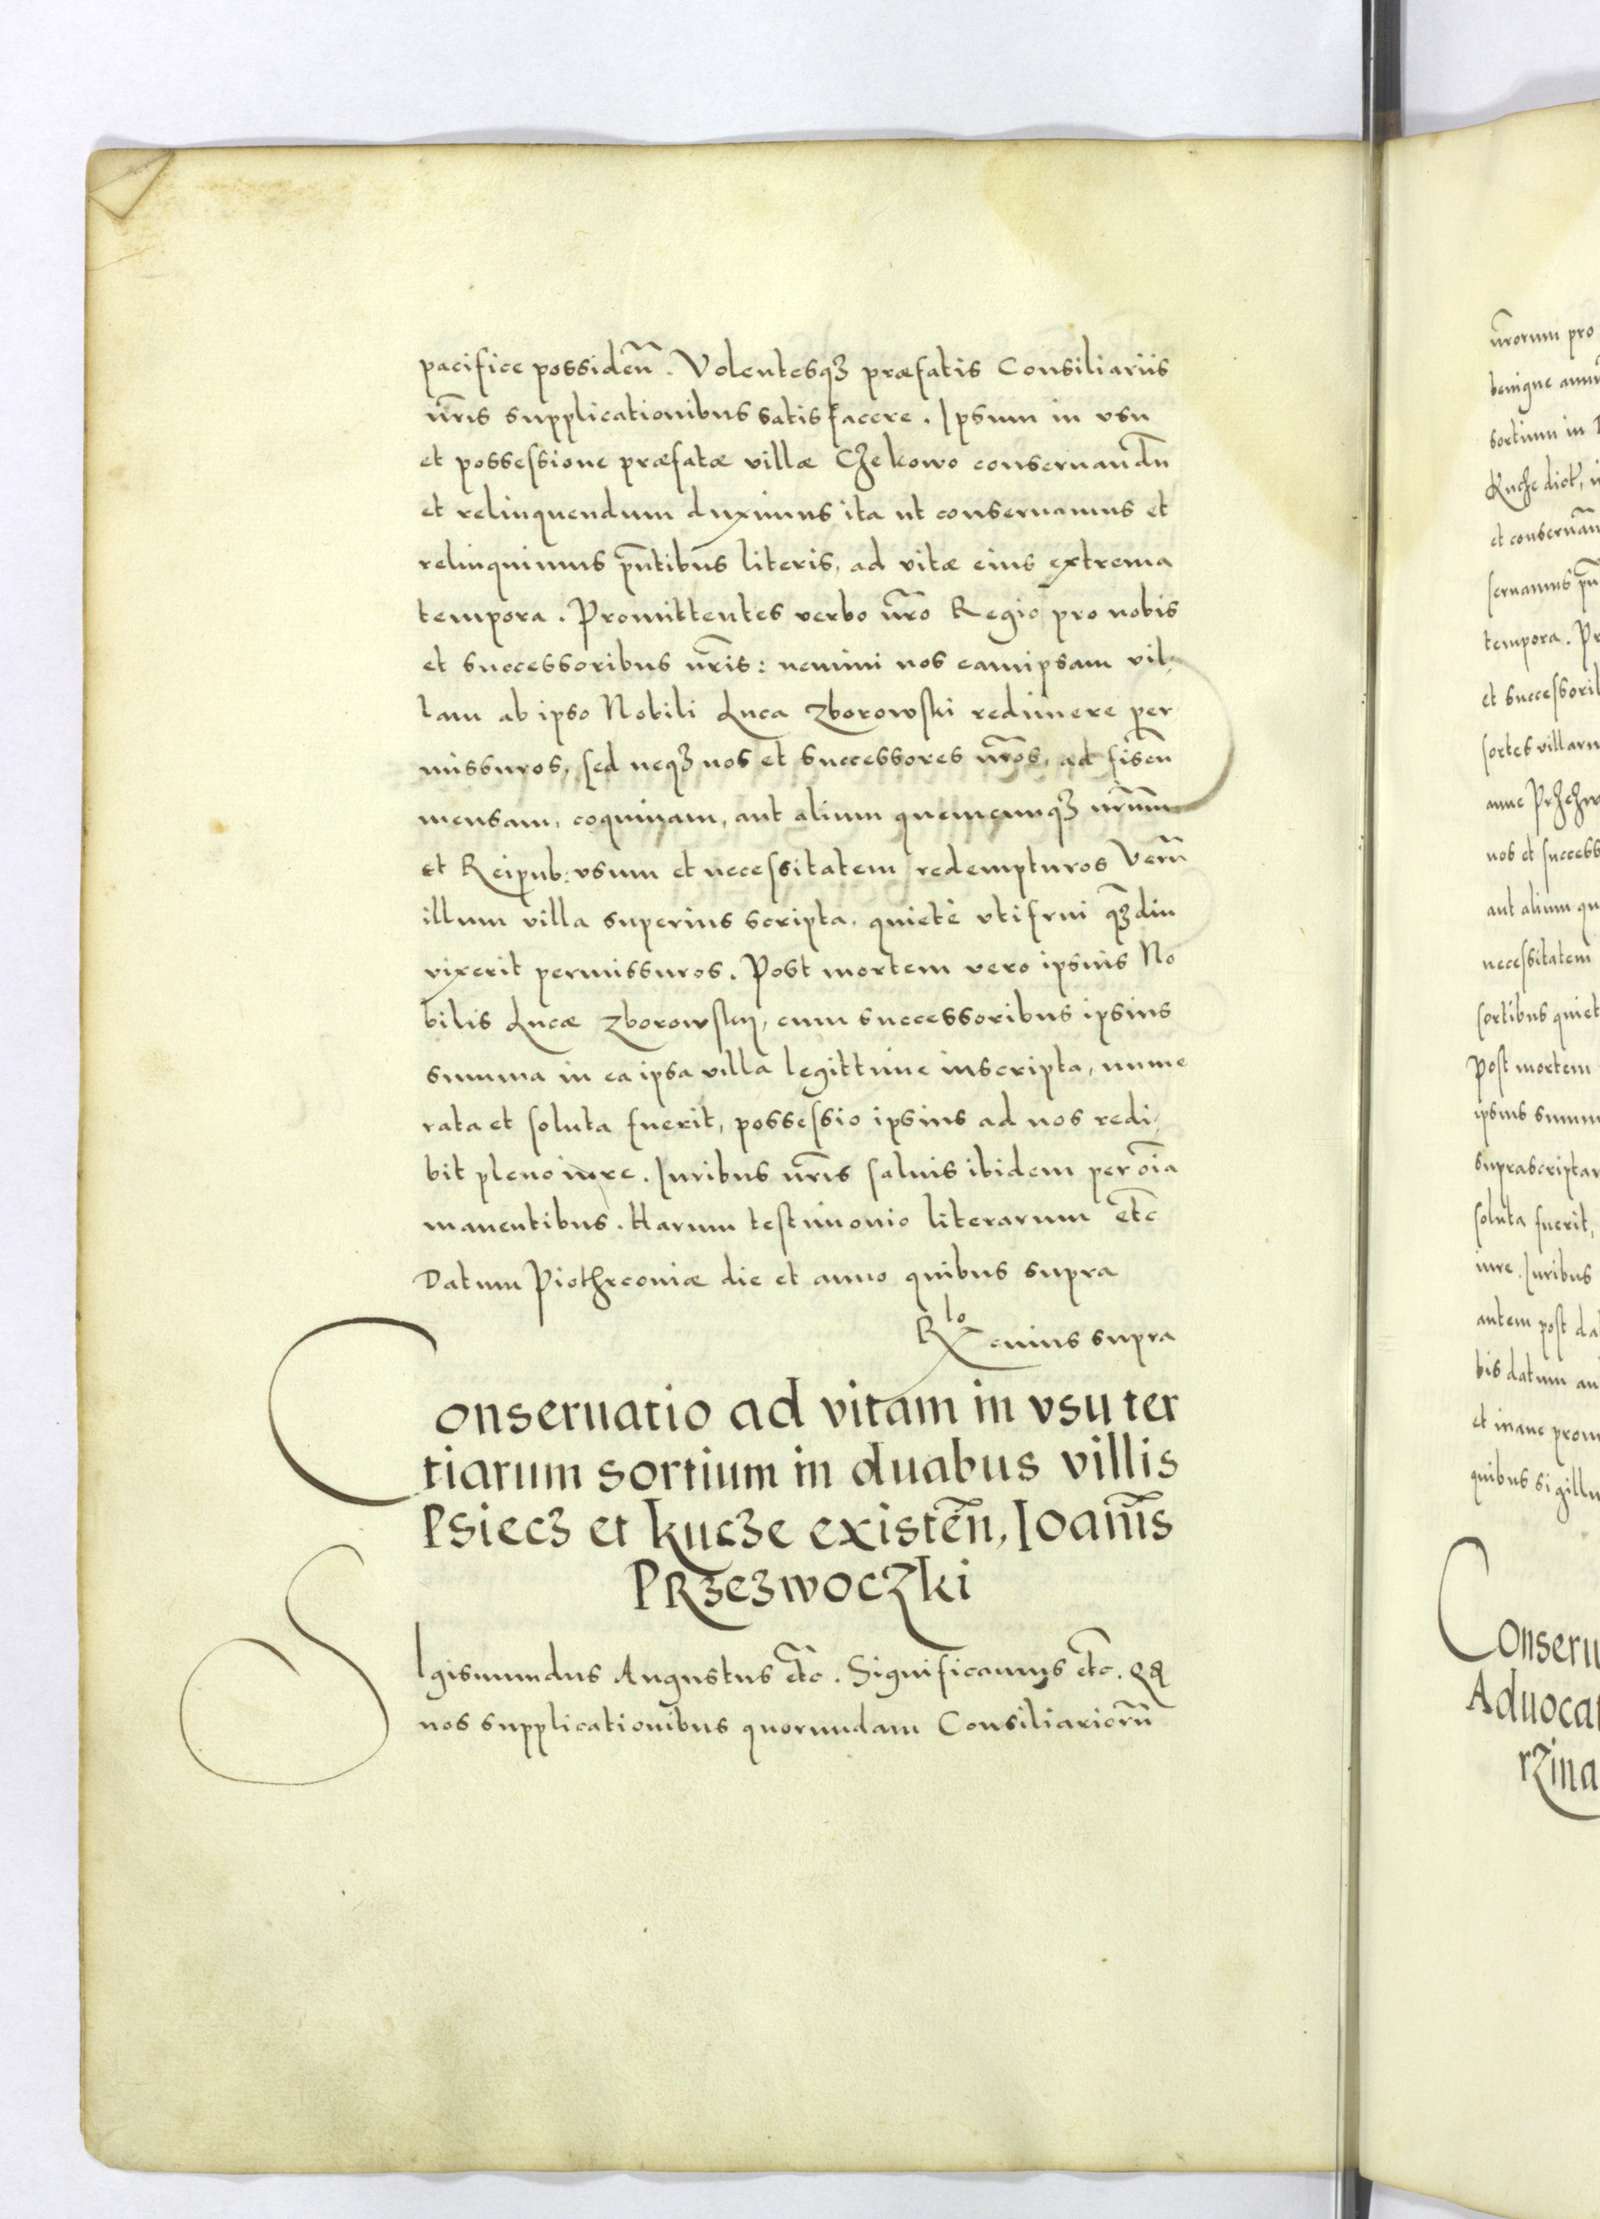 pacifice possideñ. Volentesqꝫ præfatis Consiliariis
nr̃is supplicationibus satisfacere. Ipsum in vsu
et possessione præfatæ villæ Czekowo conseruandũ
et relinquendum duximus ita ut conseruamus et
relinquimus pñtibus literis, ad vitæ eius extrema
tempora. Promittentes verbo nr̃o Regio pro nobis
et successoribus nr̃is: nemini nos eamipsam vil,
lam ab ipso Nobili Luca Zborowski redimere per
missuros, sed neqꝫ nos et successores nr̃os, ad fiscũ
mensam, coquinam, aut alium quemcumqꝫ nr̃um
et Reipub: vsum et necessitatem redempturos Verũ
illum villa superius scripta, quietè vtifrui qꝫdiu
vixerit permissuros. Post mortem vero ipsius No
bilis Lucæ Zborowskij, cum successoribus ipsius
summa in ea ipsa villa legittime inscripta, nume
rata et soluta fuerit, possessio ipsius ad nos redi,
bit pleno iure. Iuribus nr̃is saluis ibidem per oĩa
manentibus. Harum testimonio literarum etc̃
Datum Piothrconiæ die et anno quibus supra
Rlo cuius supra
Conseruatio ad vitam in vsu ter
tiarum sortium in duabus villis
Psiecz et Kucze existeñ, Ioanñis
Przezwoczki
Sigismundus Augustus etc̃. Significamus etc̃. Qꝗ
nos supplicationibus quorundam Consiliariorũ
nr̃orum pro
benigne
sortium in
Kucze dict,
et conseruan
seruamus
tempora. Pr
et successorib
sortes villaru
nos et success
aut alium qu
necessitatem
sortibus quiet
Post mortem
ipsius summ
suprascriptar
soluta fuerit,
iure. Iuribus
autem post da
bis datum au
et inane prom
quibus sigillu
Conseru
Aduocat
rzina